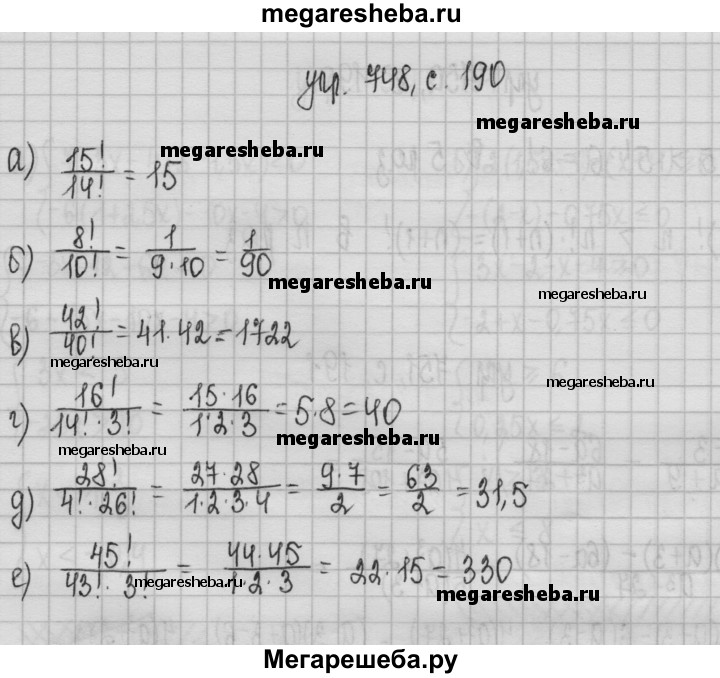 megaresheba.ru
упр. 748, с. 190
megaresheba.ru
а) 15!/14! = 15
megaresheba.ru
б) 8!/10! = 1/(9·10) = 1/90
megaresheba.ru
megaresheba.ru
в) 42!/40! = 41·42 = 1722
megaresheba.ru
megaresheba.ru
г) 16!/(14!·3!) = (15·16)/(1·2·3) = 5·8 = 40
megaresheba.ru
megaresheba.ru
д) 28!/(4!·26!) = (27·28)/(1·2·3·4) = (9·7)/2 = 63/2 = 31,5
е) 45!/(43!·3!) = (44·45)/(1·2·3) = 22·15 = 330
megaresheba.ru
megaresheba.ru
Мегарешеба.ру